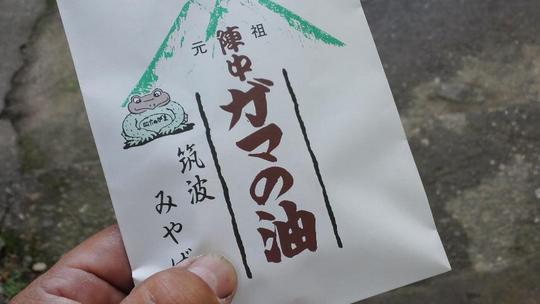 元祖
陣中ガマの油
筑波
みやげ